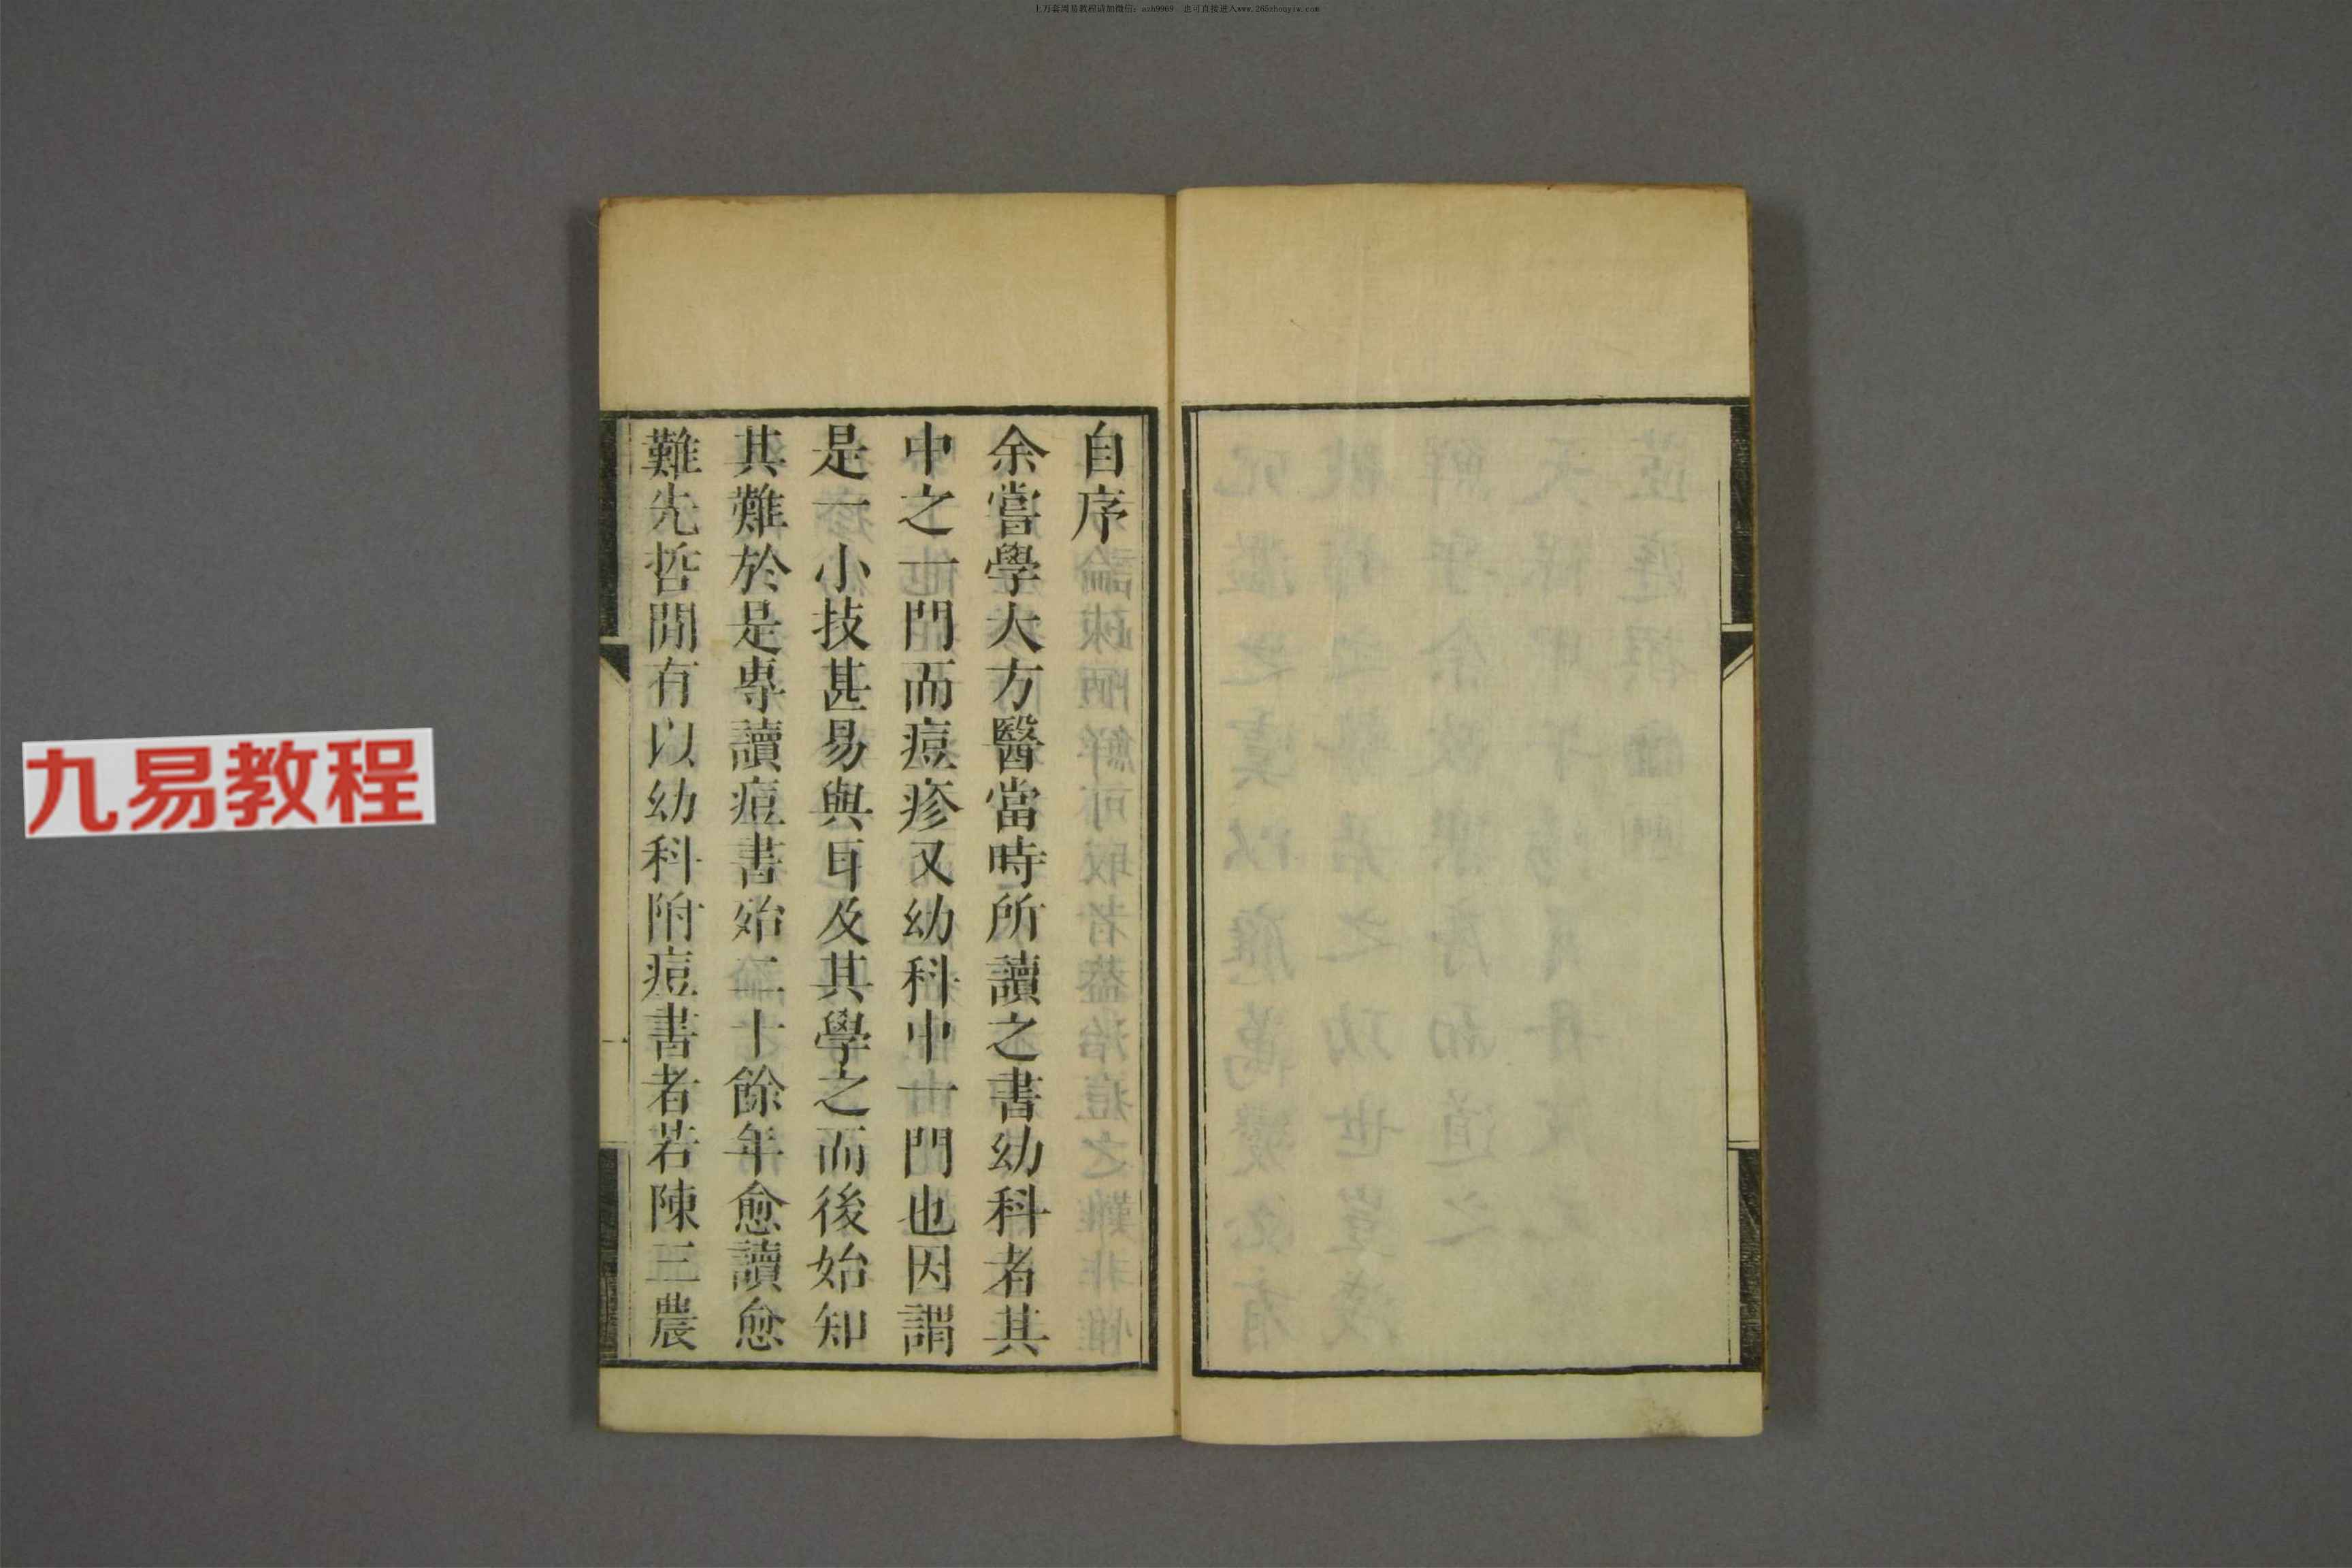 上万套周易教程请加微信：axh9969 也可直接进入www.265zhouyiw.com
自序
余嘗學大方醫當時所讀之書幼科者其
中之一門而痘疹又幼科中一門也因謂
是一小技甚易與耳及其學之而後始知
其難於是專讀痘書殆二十餘年愈讀愈
難先哲閒有以幼科附痘書者若陳三農
一
九易教程